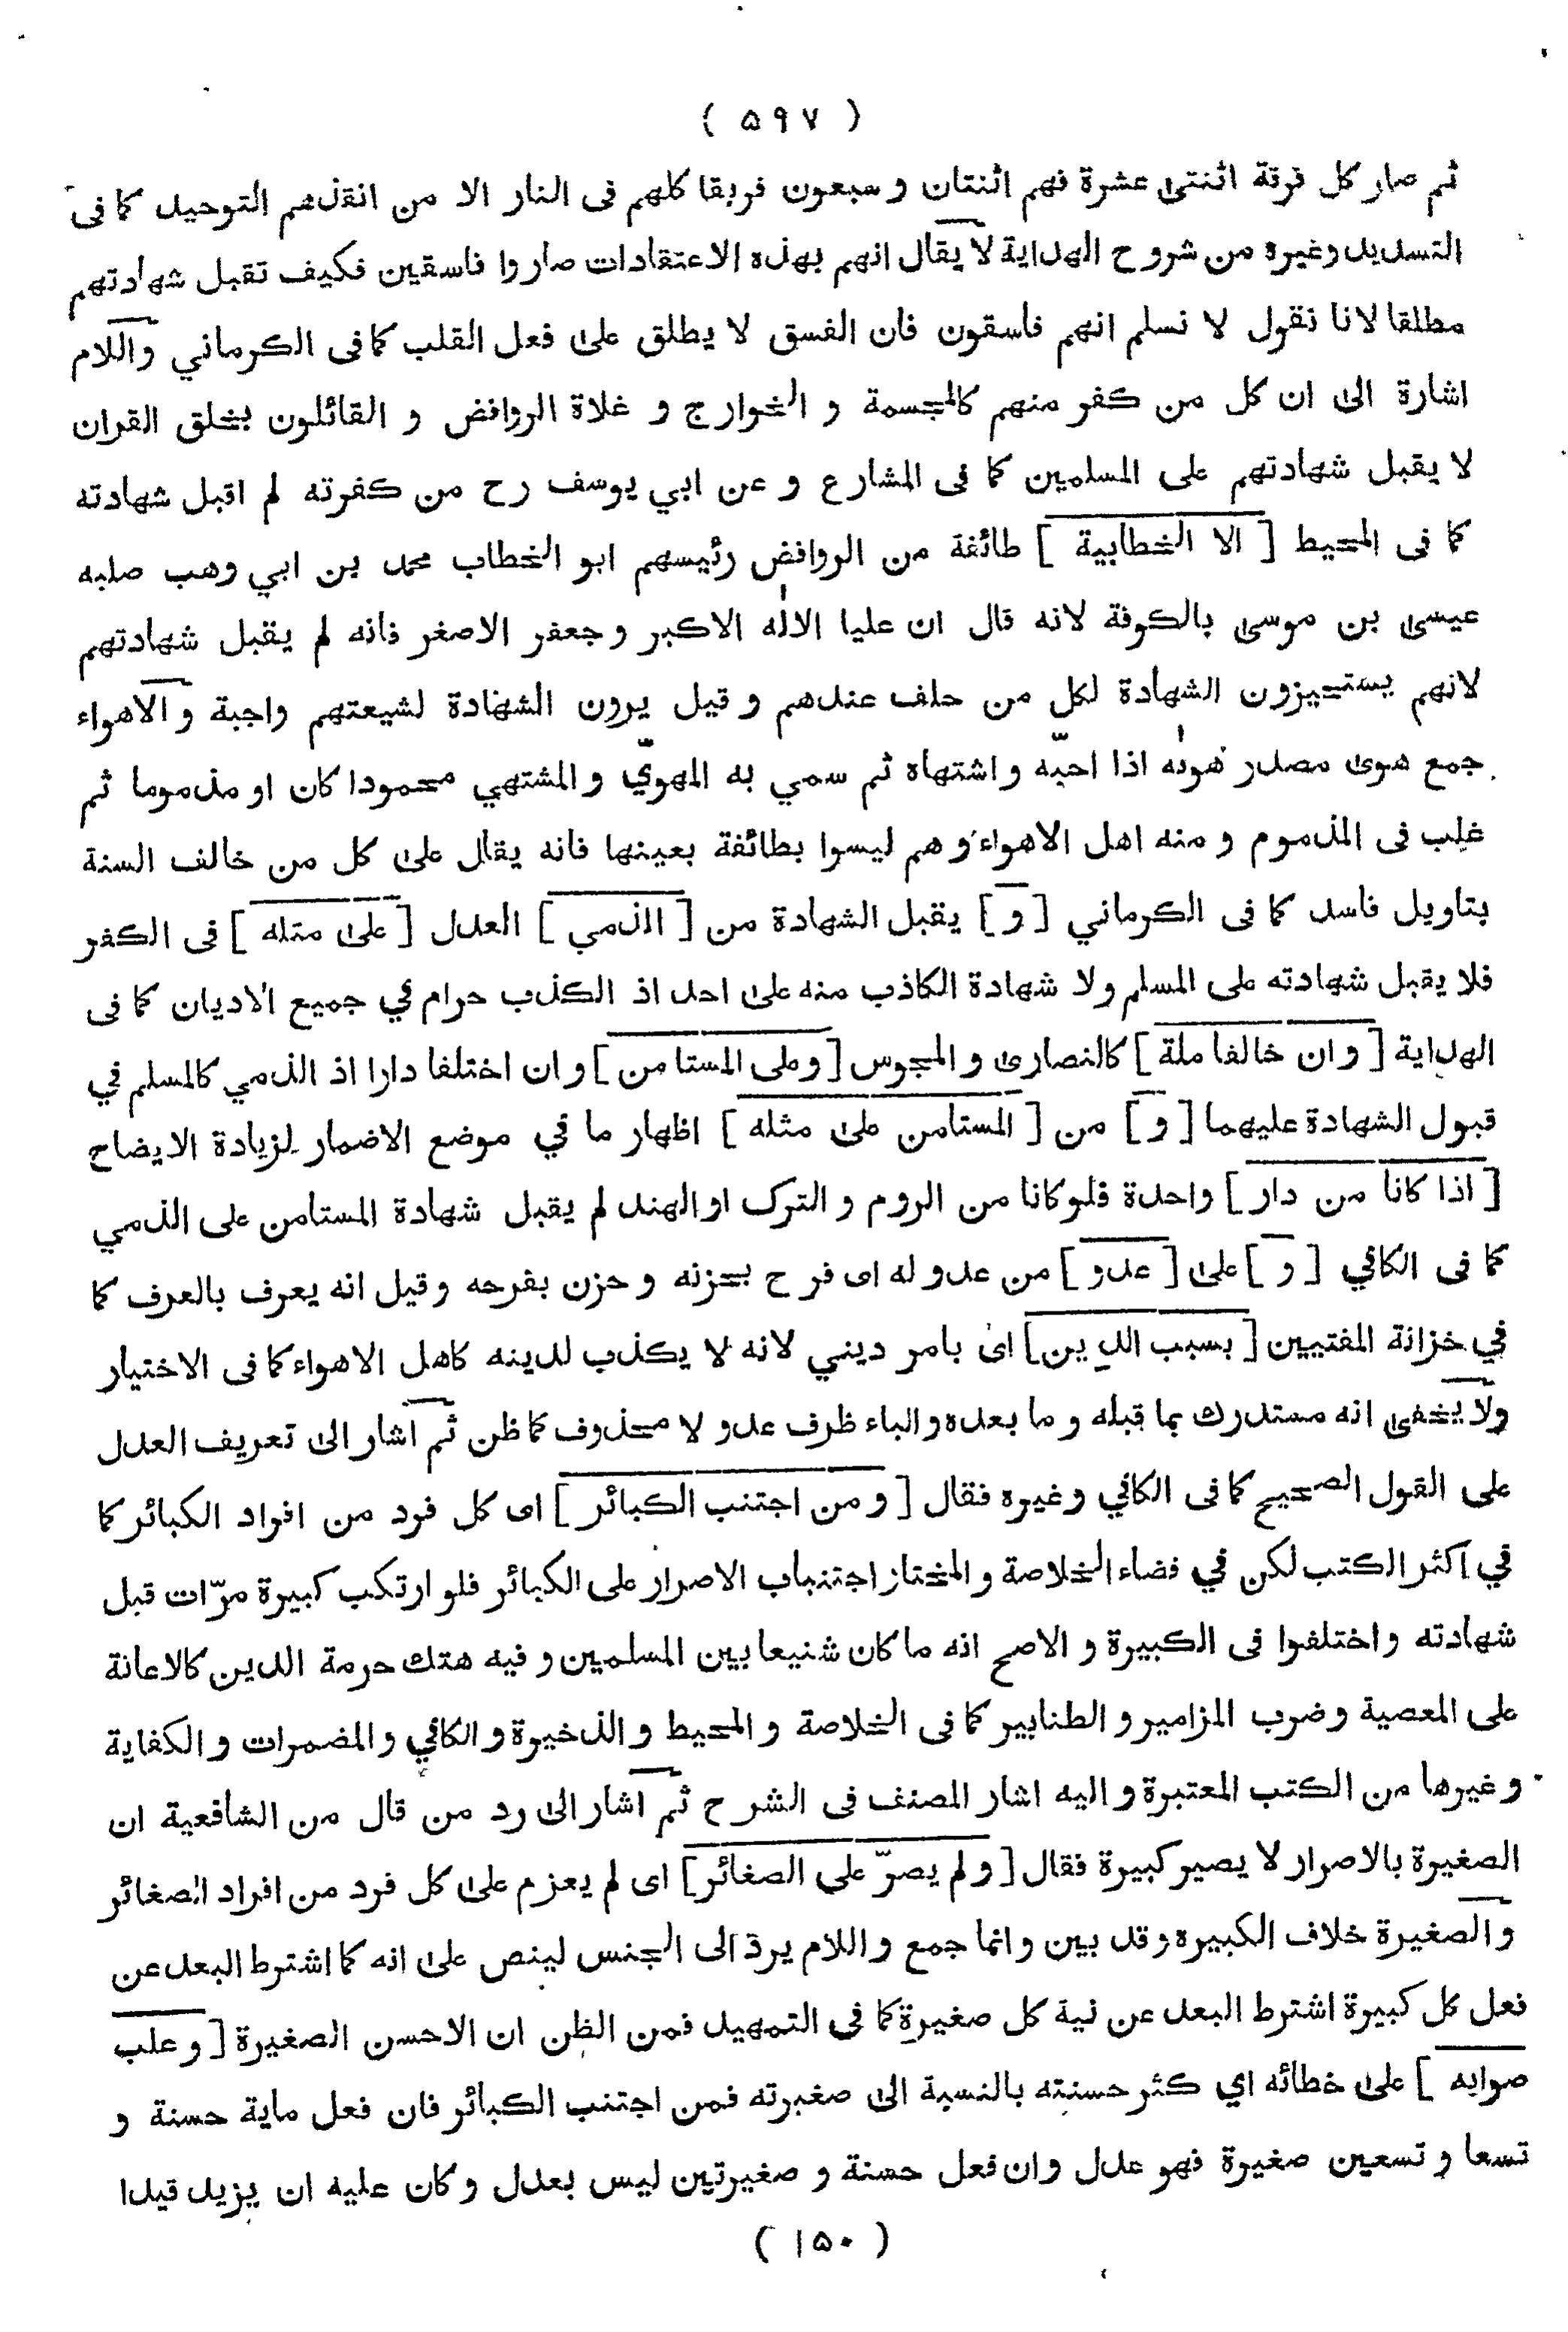 ( ۵۹۷ )
ثم صار كل فرقة اثنتى عشرة فهم اثنتان و سبعون فريقا كلهم فى النار الا من انقذهم التوحيد كما فى
التسديد وغيره من شروح الهداية لا يقال انهم بهذه الاعتقادات صاروا فاسقين فكيف تقبل شهادتهم
مطلقا لانا نقول لا نسلم انهم فاسقون فان الفسق لا يطلق على فعل القلب كما فى الكرماني واللام
اشارة الى ان كل من كفر منهم كالمجسمة و الخوارج و غلاة الروافض و القائلون بخلق القران
لا يقبل شهادتهم على المسلمين كما فى المشارع و عن ابي يوسف رح من كفرته لم اقبل شهادته
كما فى المحيط [ الا الخطابية ] طائفة من الروافض رئيسهم ابو الخطاب محمد بن ابي وهب صلبه
عيسى بن موسى بالكوفة لانه قال ان عليا الاله الاكبر و جعفر الاصغر فانه لم يقبل شهادتهم
لانهم يستجيزون الشهادة لكل من حلف عندهم و قيل يرون الشهادة لشيعتهم واجبة و الاهواء
جمع هوى مصدر هويه اذا احبّه و اشتهاه ثم سمي به المهويّ و المشتهي محمودا كان او مذموما ثم
غلب فى المذموم و منه اهل الاهواء و هم ليسوا بطائفة بعينها فانه يقال على كل من خالف السنة
بتاويل فاسد كما فى الكرماني [ و ] يقبل الشهادة من [ الذمي ] العدل [ على مثله ] فى الكفر
فلا يقبل شهادته على المسلم ولا شهادة الكاذب منه على احد اذ الكذب حرام في جميع الاديان كما فى
الهداية [ و ان خالفا ملة ] كالنصارى و المجوس [ و على المستامن ] و ان اختلفا دارا اذ الذمي كالمسلم في
قبول الشهادة عليهما [ و ] من [ المستامن على مثله ] اظهار ما في موضع الاضمار لزيادة الايضاح
[ اذا كانا من دار ] واحدة فلو كانا من الروم و الترك او الهند لم يقبل شهادة المستامن على الذمي
كما فى الكافي [ و ] على [ عدو ] من عدو له اى فرح بحزنه و حزن بفرحه و قيل انه يعرف بالعرف كما
في خزانة المفتيين [ بسبب الدين ] اى بامر ديني لانه لا يكذب لدينه كاهل الاهواء كما فى الاختيار
ولا يخفى انه مستدرك بما قبله و ما بعده و الباء ظرف عدو لا محذوف كما ظن ثم اشار الى تعريف العدل
على القول الصحيح كما فى الكافي وغيره فقال [ و من اجتنب الكبائر ] اى كل فرد من افراد الكبائر كما
في اكثر الكتب لكن في قضاء الخلاصة و المختار اجتناب الاصرار على الكبائر فلو ارتكب كبيرة مرّات قبل
شهادته و اختلفوا فى الكبيرة و الاصح انه ما كان شنيعا بين المسلمين و فيه هتك حرمة الدين كالاعانة
على المعصية و ضرب المزامير و الطنابير كما فى الخلاصة و المحيط و الذخيرة و الكافي و المضمرات و الكفاية
و غيرها من الكتب المعتبرة و اليه اشار المصنف فى الشرح ثم اشار الى رد من قال من الشافعية ان
الصغيرة بالاصرار لا يصير كبيرة فقال [ و لم يصرّ على الصغائر ] اى لم يعزم على كل فرد من افراد الصغائر
و الصغيرة خلاف الكبيرة و قد بين و انما جمع و اللام يردّ الى الجنس لينص على انه كما اشترط البعد عن
فعل كل كبيرة اشترط البعد عن نية كل صغيرة كما فى التمهيد فمن الظن ان الاحسن الصغيرة [ و غلب
صوابه ] على خطائه اي كثر حسنته بالنسبة الى صغيرته فمن اجتنب الكبائر فان فعل ماية حسنة و
تسعا و تسعين صغيرة فهو عدل و ان فعل حسنة و صغيرتين ليس بعدل و كان عليه ان يزيد قيدا
( ۱۵۰ )